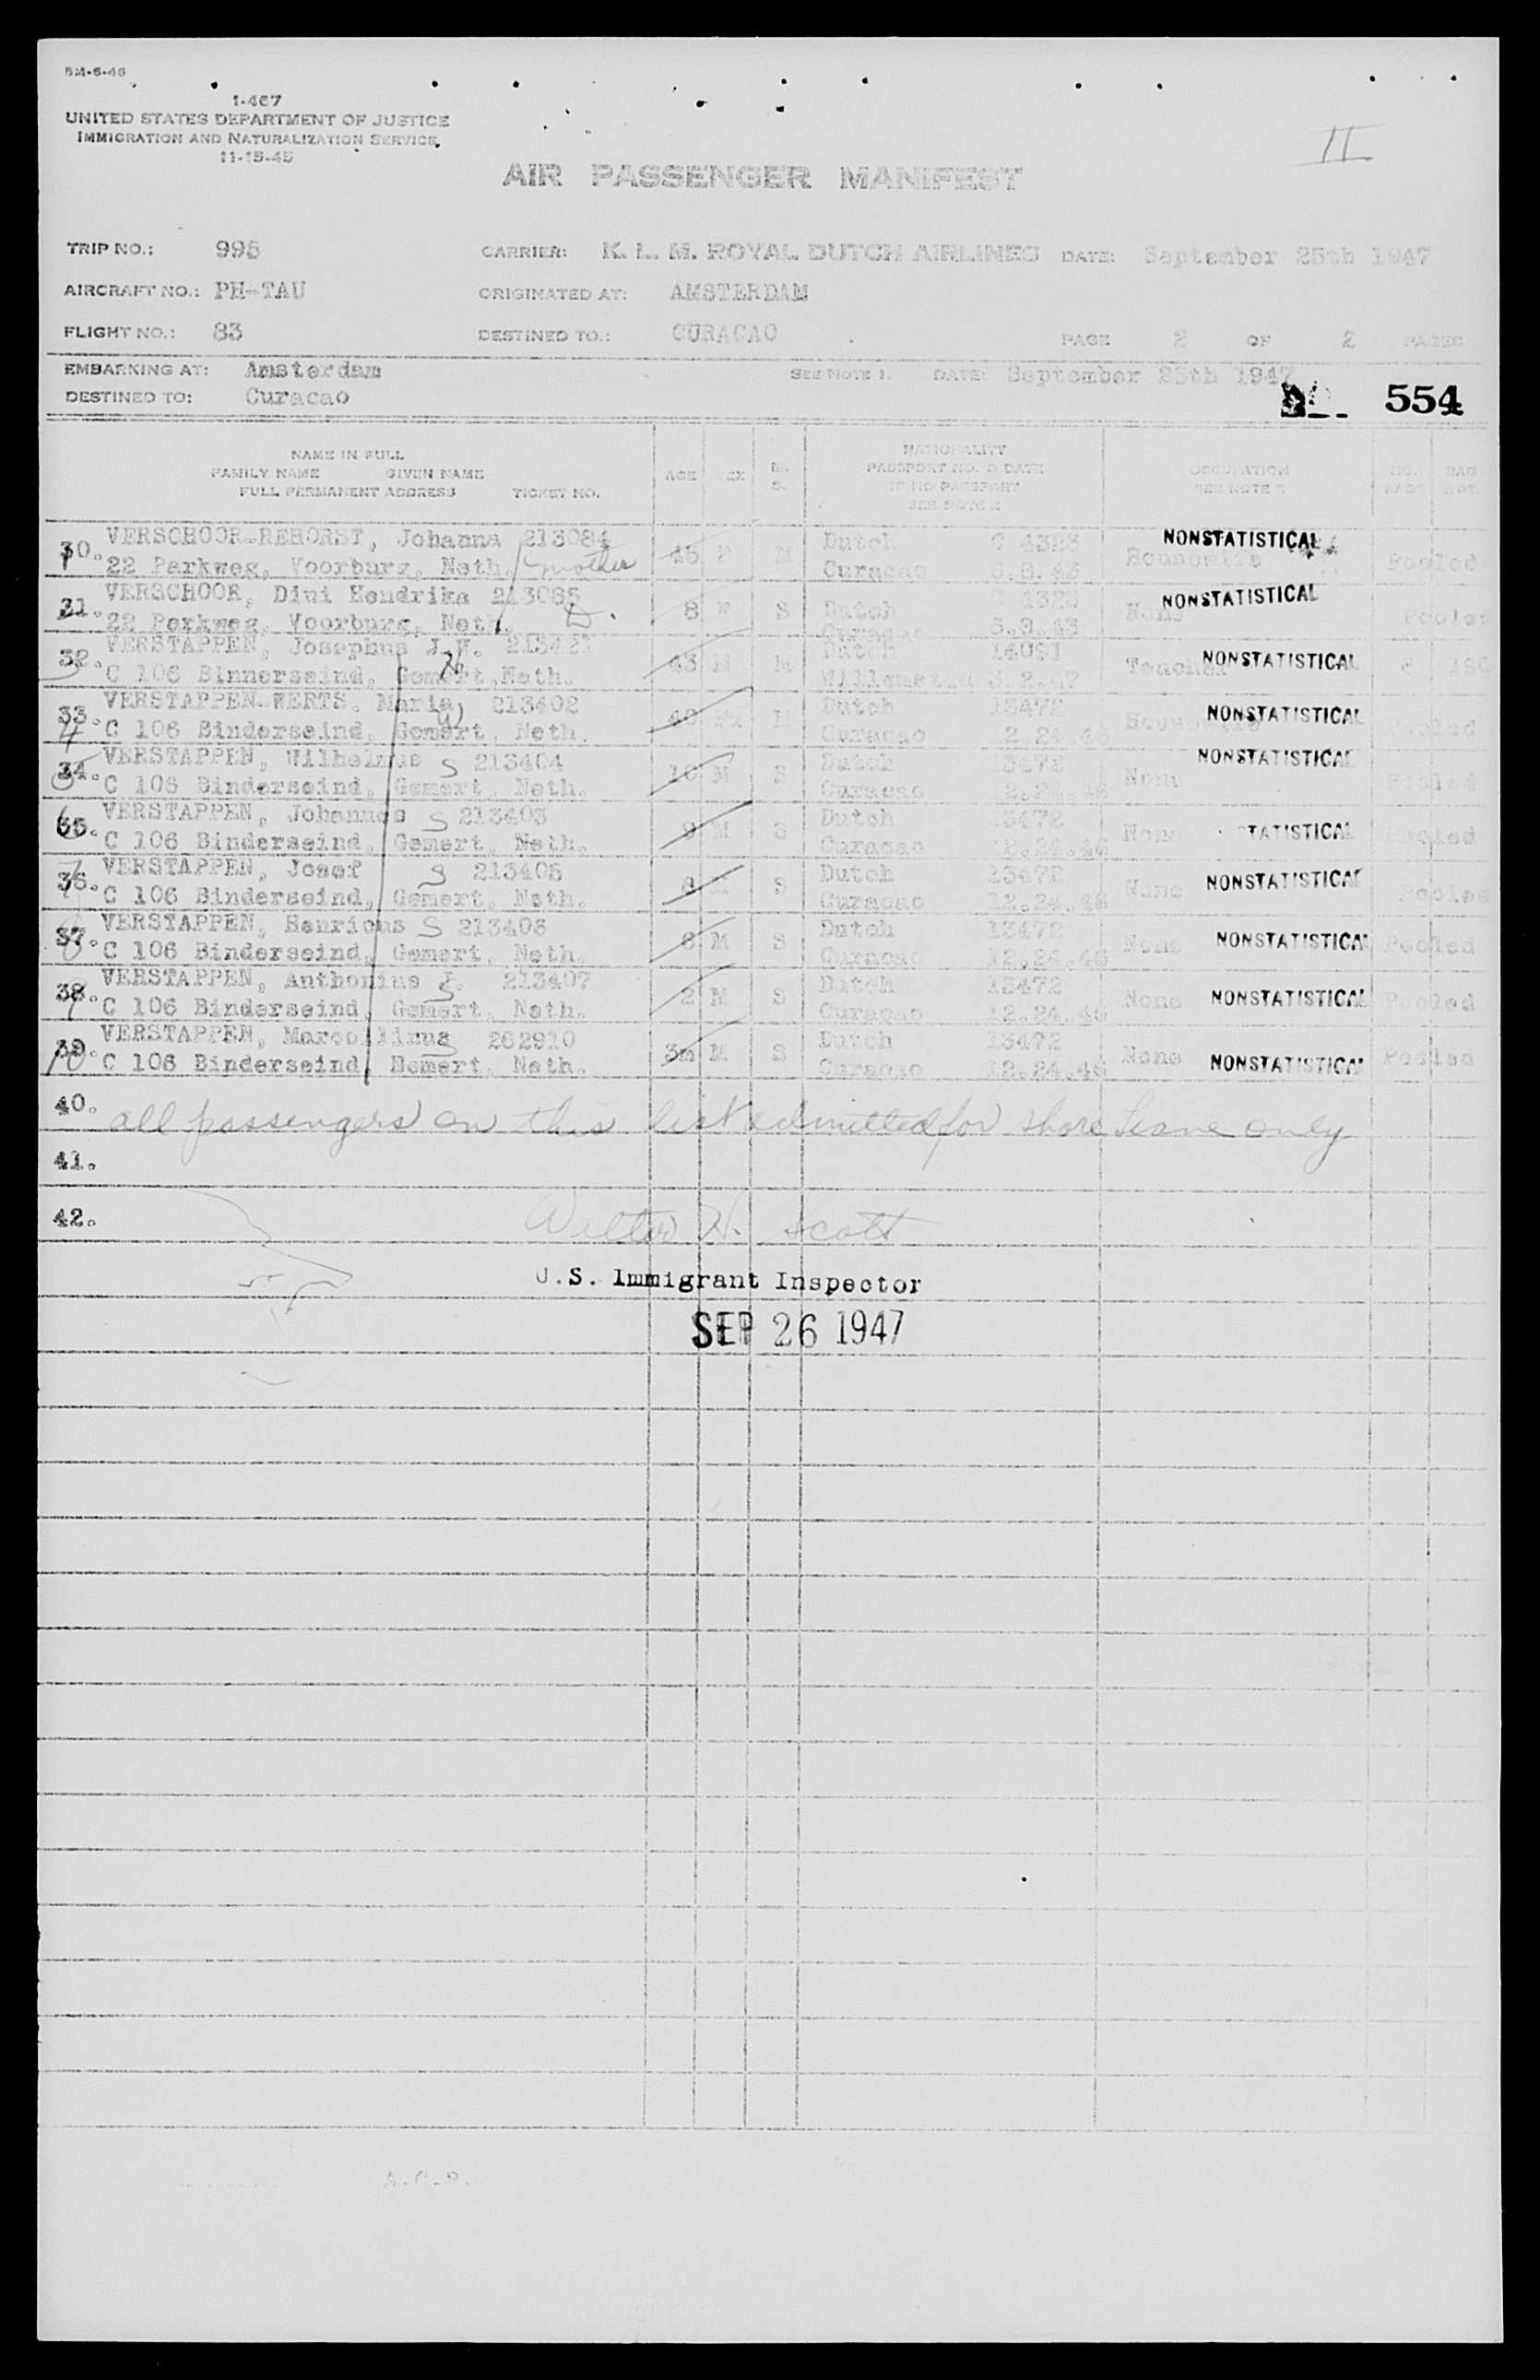 5M-6-46
1-467
UNITED STATES DEPARTMENT OF JUSTICE
IMMIGRATION AND NATURALIZATION SERVICE
11-15-45
II
AIR PASSENGER MANIFEST
TRIP NO.: 995 CARRIER: K. L. M. ROYAL DUTCH AIRLINES DATE: September 25th 1947
AIRCRAFT NO.: PH-TAU ORIGINATED AT: AMSTERDAM
FLIGHT NO.: 83 DESTINED TO.: CURACAO PAGE 2 OF 2 PAGES
EMBARKING AT: Amsterdam SEE NOTE 1. DATE: September 25th 1947
DESTINED TO: Curacao 554
NAME IN FULL NATIONALITY
FAMILY NAME GIVEN NAME AGE SEX M. PASSPORT NO. & DATE OCCUPATION NO. BAG
FULL PERMANENT ADDRESS TICKET NO. S. IF NO PASSPORT SEE NOTE BAGS WGT.
SEE NOTE 2
30. VERSCHOOR-REHORST, Johanna 213084 45 F M Dutch C 4323 Housewife NONSTATISTICAL Pooled
22 Parkweg, Voorburg, Neth. mother Curacao
31. VERSCHOOR, Dini Hendrika 213085 8 F S Dutch C 4323 None NONSTATISTICAL Pooled
22 Parkweg, Voorburg, Neth. D. Curacao
32. VERSTAPPEN, Josephus J.W. 43 M M Dutch 14091 Teacher NONSTATISTICAL
C 106 Binnerseind, Gemert, Neth. Willemstad
33. VERSTAPPEN-WERTS, Maria W 213402 40 M Dutch 13472 Housewife NONSTATISTICAL Pooled
4 C 106 Binderseind, Gemert, Neth. Curacao 12.24.46
34. VERSTAPPEN, Wilhelmus S 213404 10 M S Dutch 13472 None NONSTATISTICAL Pooled
5 C 106 Binderseind, Gemert, Neth. Curacao 12.24.46
35. VERSTAPPEN, Johannes S 213403 9 M S Dutch 13472 None TATISTICAL Pooled
6 C 106 Binderseind, Gemert, Neth. Curacao 12.24.46
36. VERSTAPPEN, Josef S 213405 M S Dutch 13472 None NONSTATISTICAL Pooled
7 C 106 Binderseind, Gemert, Neth. Curacao 12.24.46
37. VERSTAPPEN, Henricus S 213406 6 M S Dutch 13472 None NONSTATISTICAL Pooled
8 C 106 Binderseind, Gemert, Neth. Curacao 12.24.46
38. VERSTAPPEN, Anthonius S 213407 2 M S Dutch 13472 None NONSTATISTICAL Pooled
9 C 106 Binderseind, Gemert, Neth. Curacao 12.24.46
39. VERSTAPPEN, Marcellinus S 262910 3m M S Dutch 13472 None NONSTATISTICAL Pooled
10 C 106 Binderseind, Hemert, Neth. Curacao 12.24.46
40. all passengers on this list admitted for shore leave only
41.
42. Walter H. Scott
U.S. Immigrant Inspector
SEP 26 1947